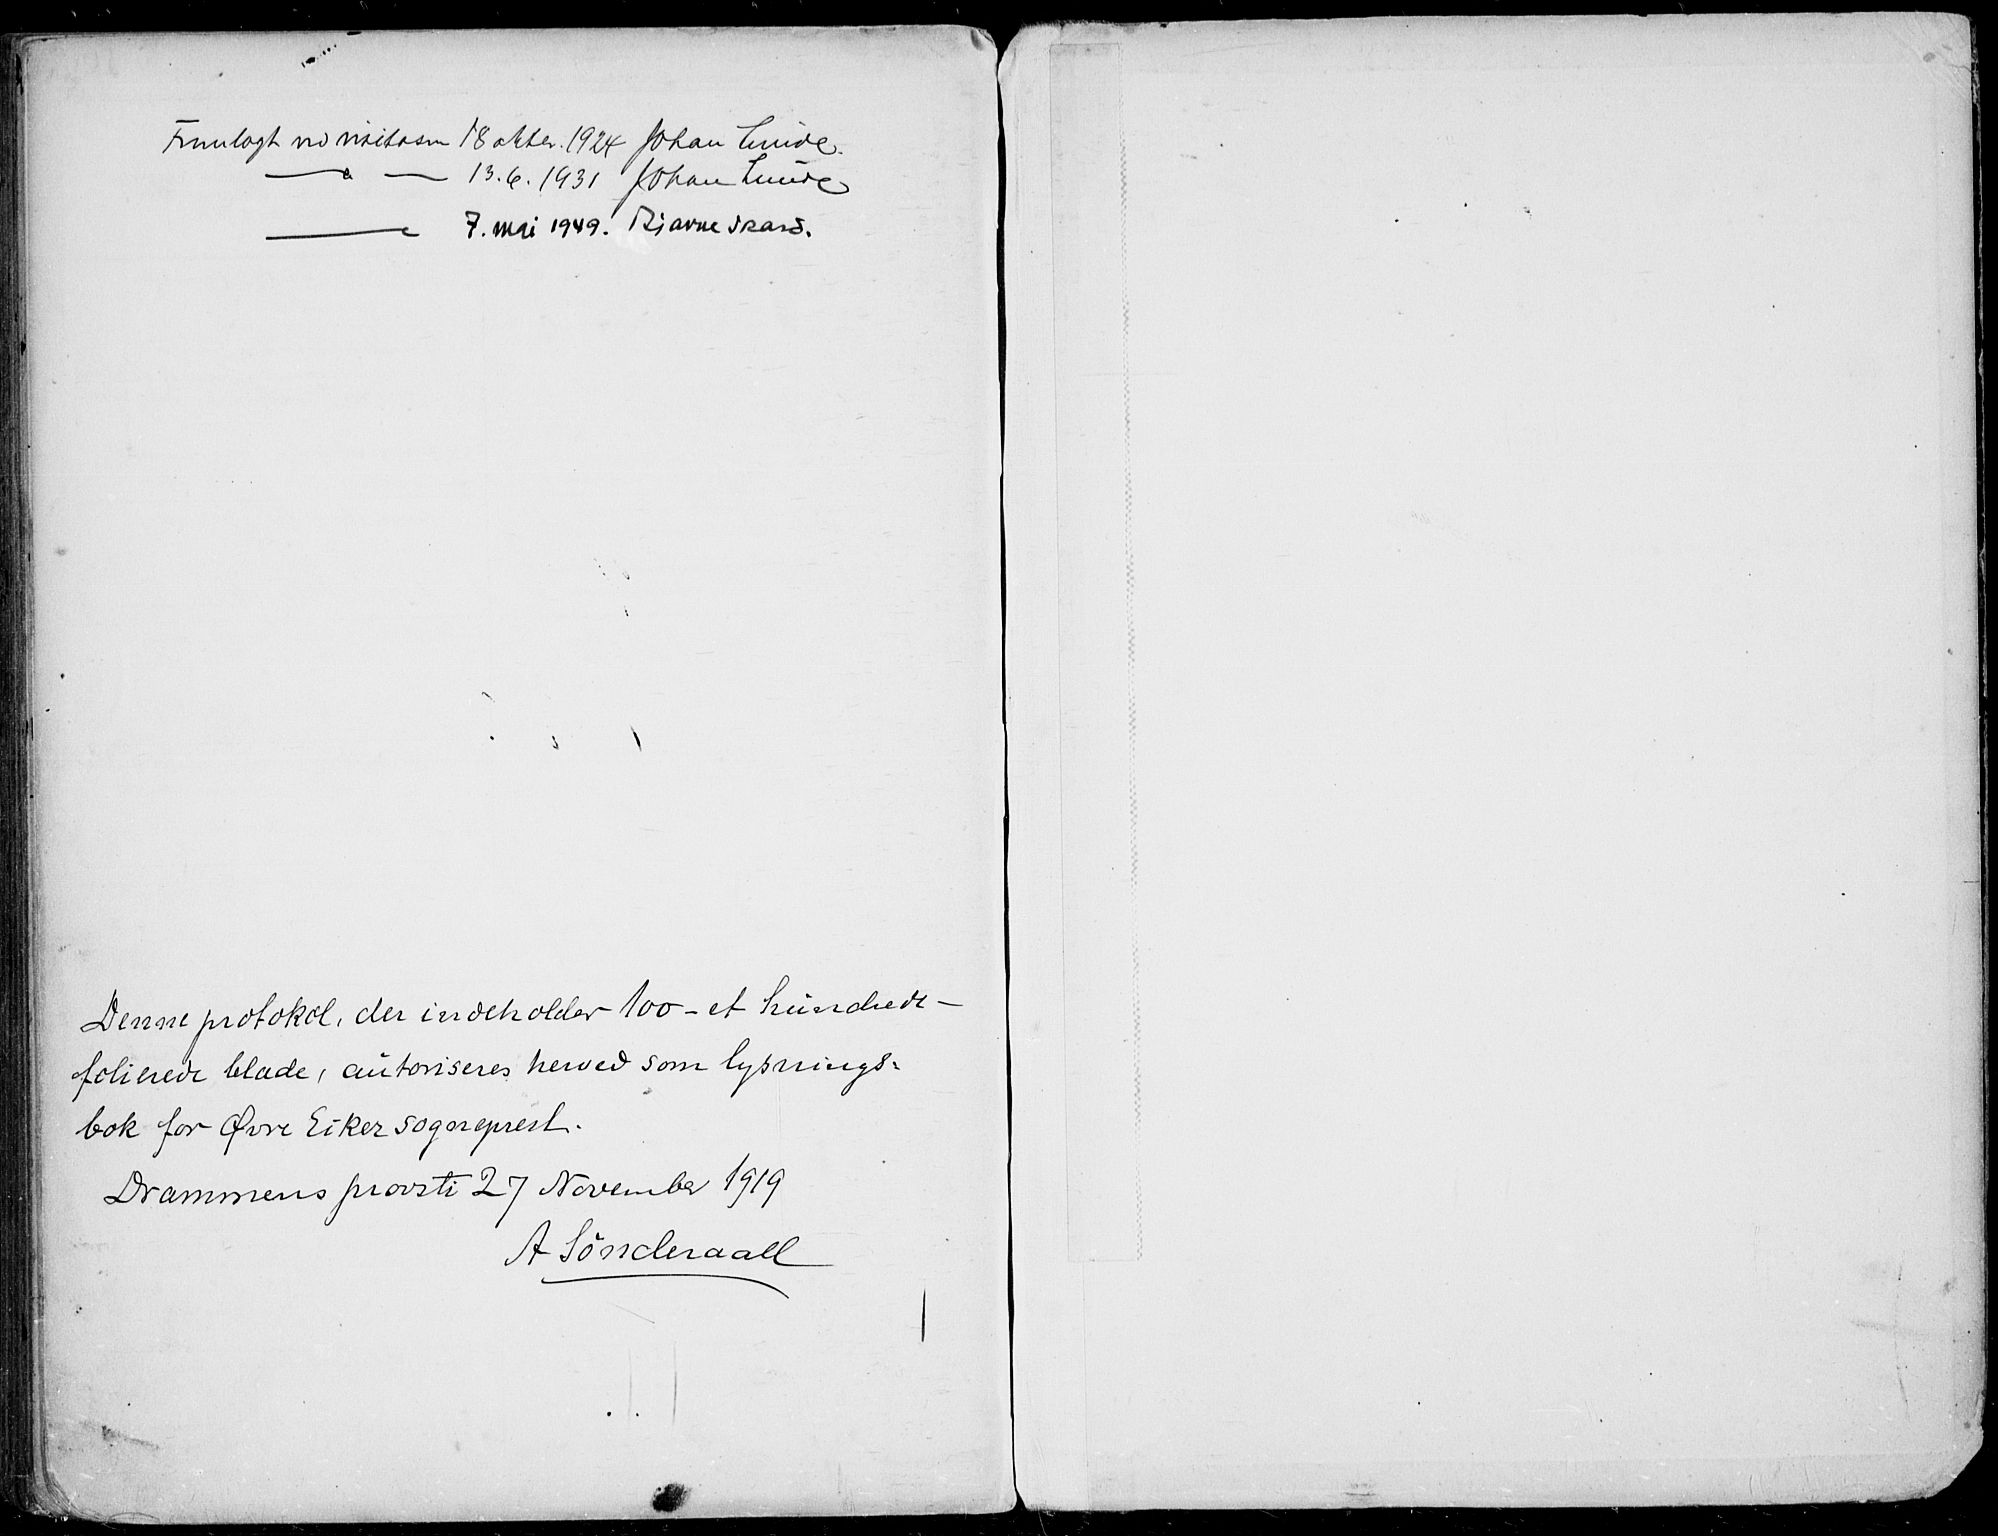 Fremlagt ved visitasen 18 oktbr. 1924 Johan Lunde.
— " — 13.6.1931 Johan Lunde
— " 7. mai 1949. Bjarne Skard.
Denne protokol, der indeholder 100 - et hundrede -
folierede blade, autoriseres herved som lysnings-
bok for Øvre Eiker sogneprest.
Drammens provsti 27 November 1919
A Sönderaall